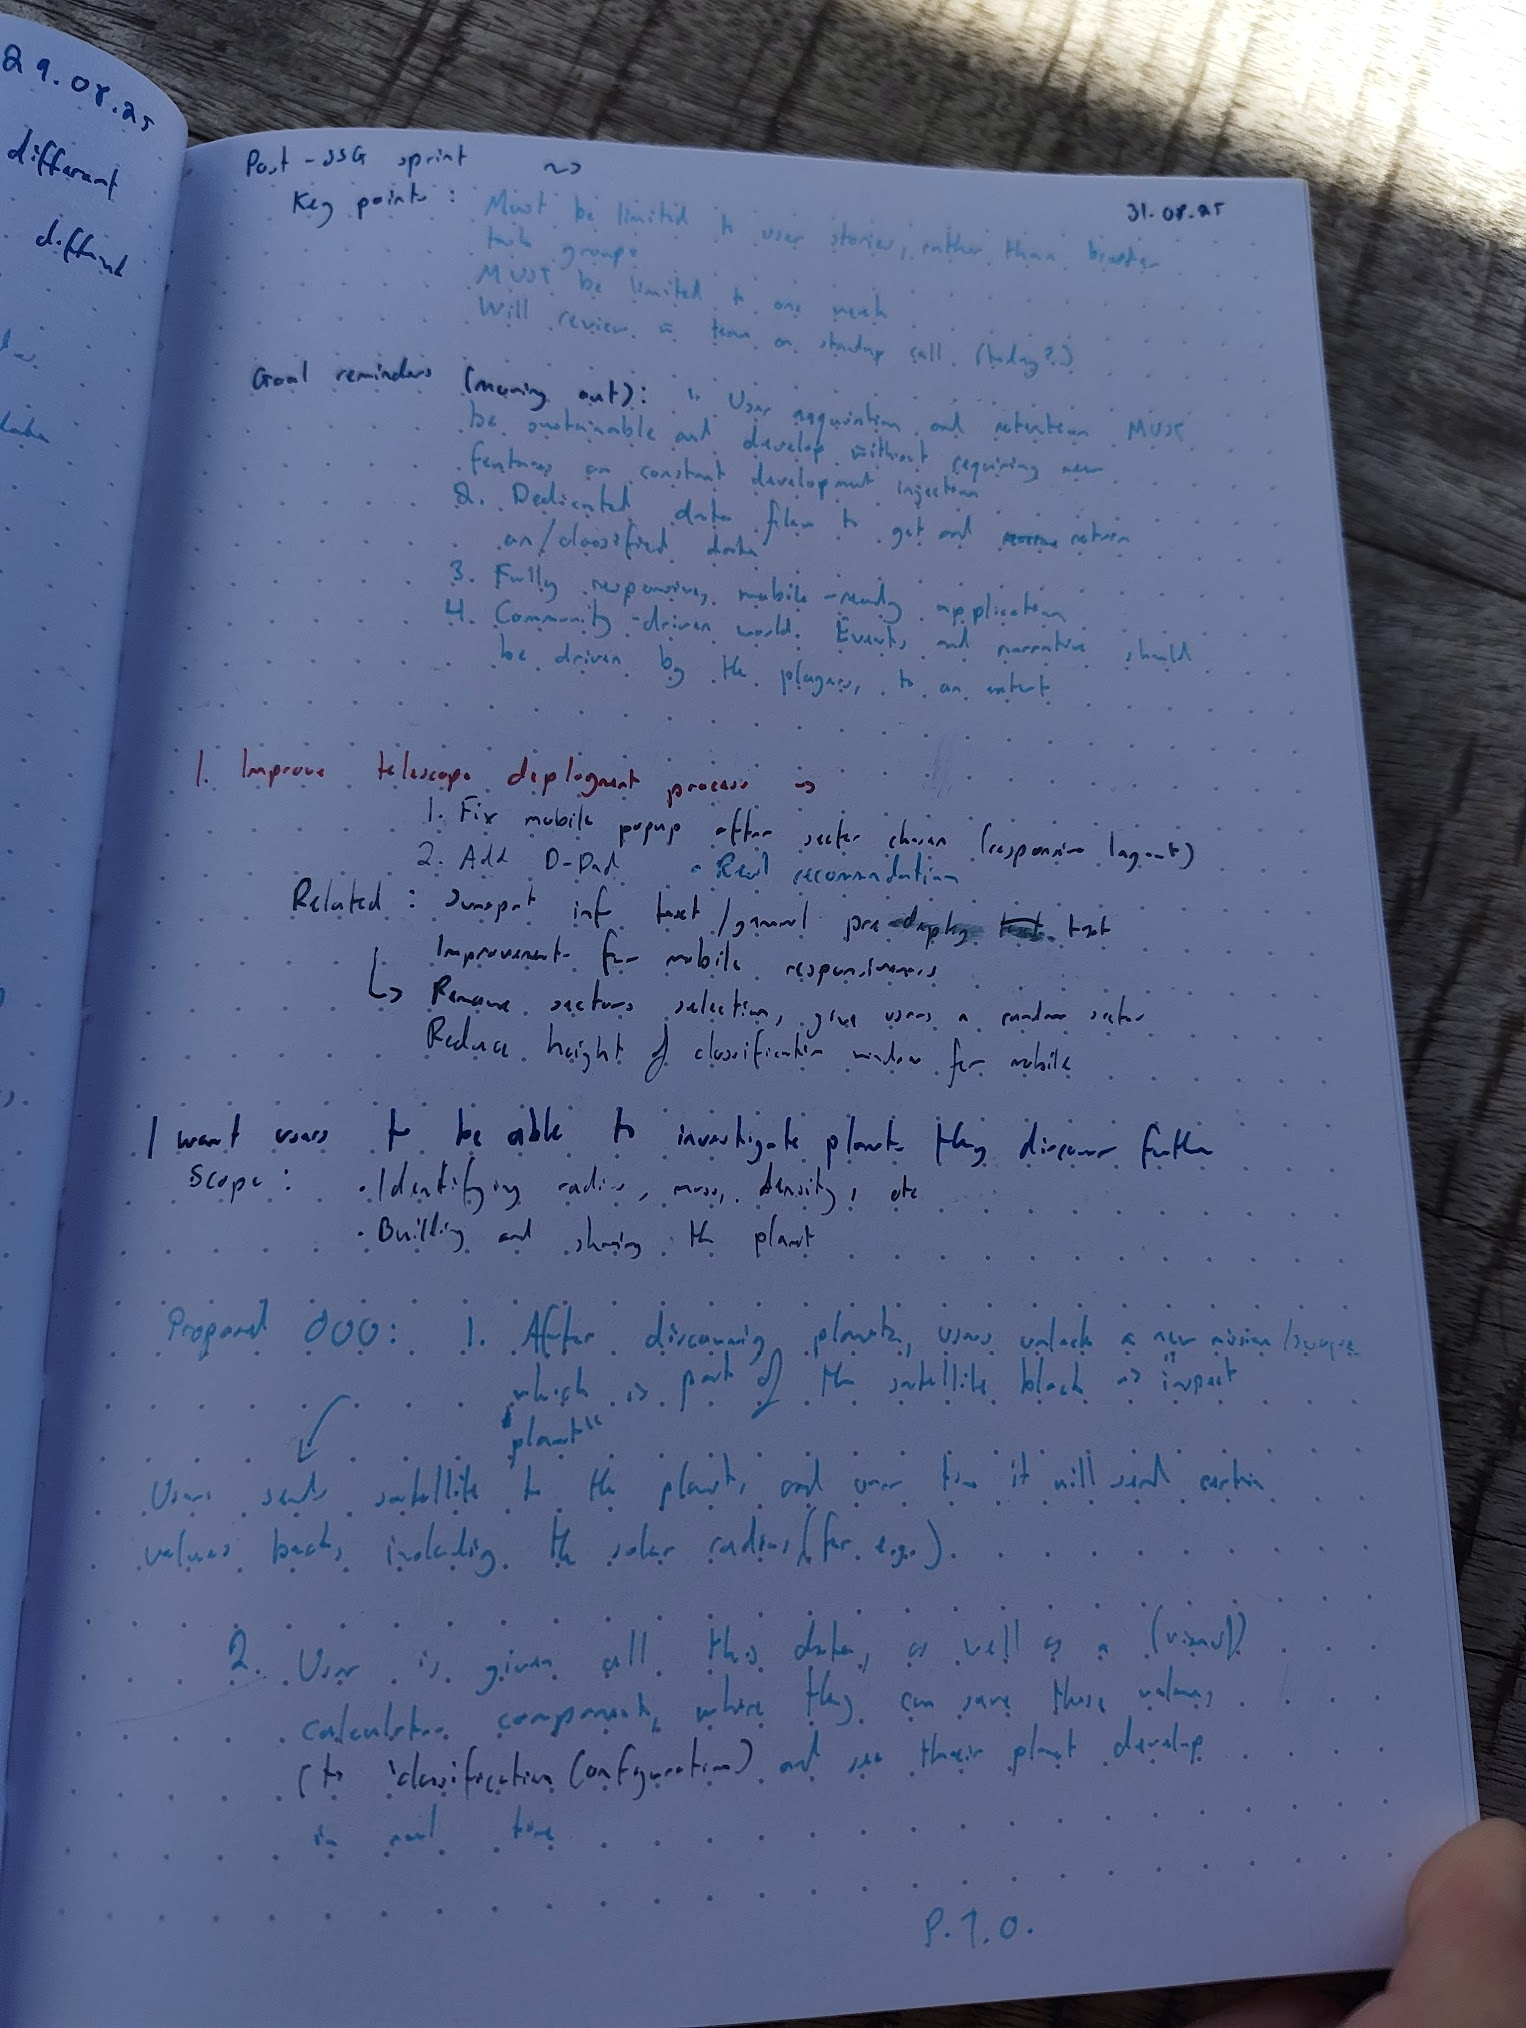 29.08.25
different
different
data
Post-SSG sprint ~>
31.08.25
Key points: Must be limited to user stories, rather than broader
task groups
MUST be limited to one week
Will review w team on standup call (today?)
Goal reminders (moving out): 1. User acquisition and retention MUST
be sustainable and develop without requiring new
features or constant development injection
2. Dedicated data flow to get and return
un/classified data
3. Fully responsive, mobile-ready application
4. Community-driven world. Events and narrative should
be driven by the players, to an extent
1. Improve telescope deployment process ->
1. Fix mobile popup after sector chosen (responsive layout)
2. Add D-Pad • Real recommendation
Related: Sunspot inf text/general pre-deploy text
Improvements for mobile responsiveness
↳ Remove sectors selection, give users a random sector
Reduce height of classification window for mobile
I want users to be able to investigate planets they discover further
Scope: • Identifying radius, mass, density, etc
• Building and sharing the planet
Proposed OOO: 1. After discovering planets, users unlock a new mission/
which is part of the satellite block -> "inspect
planet"
Users sends satellite to the planet, and over time it will send certain
values back, including the solar radius (for e.g.)
2. User is given all this data, as well as a (visual)
calculator component, where they can save these values
(to 'classification Configuration) and see their planet develop
in real time
P.T.O.